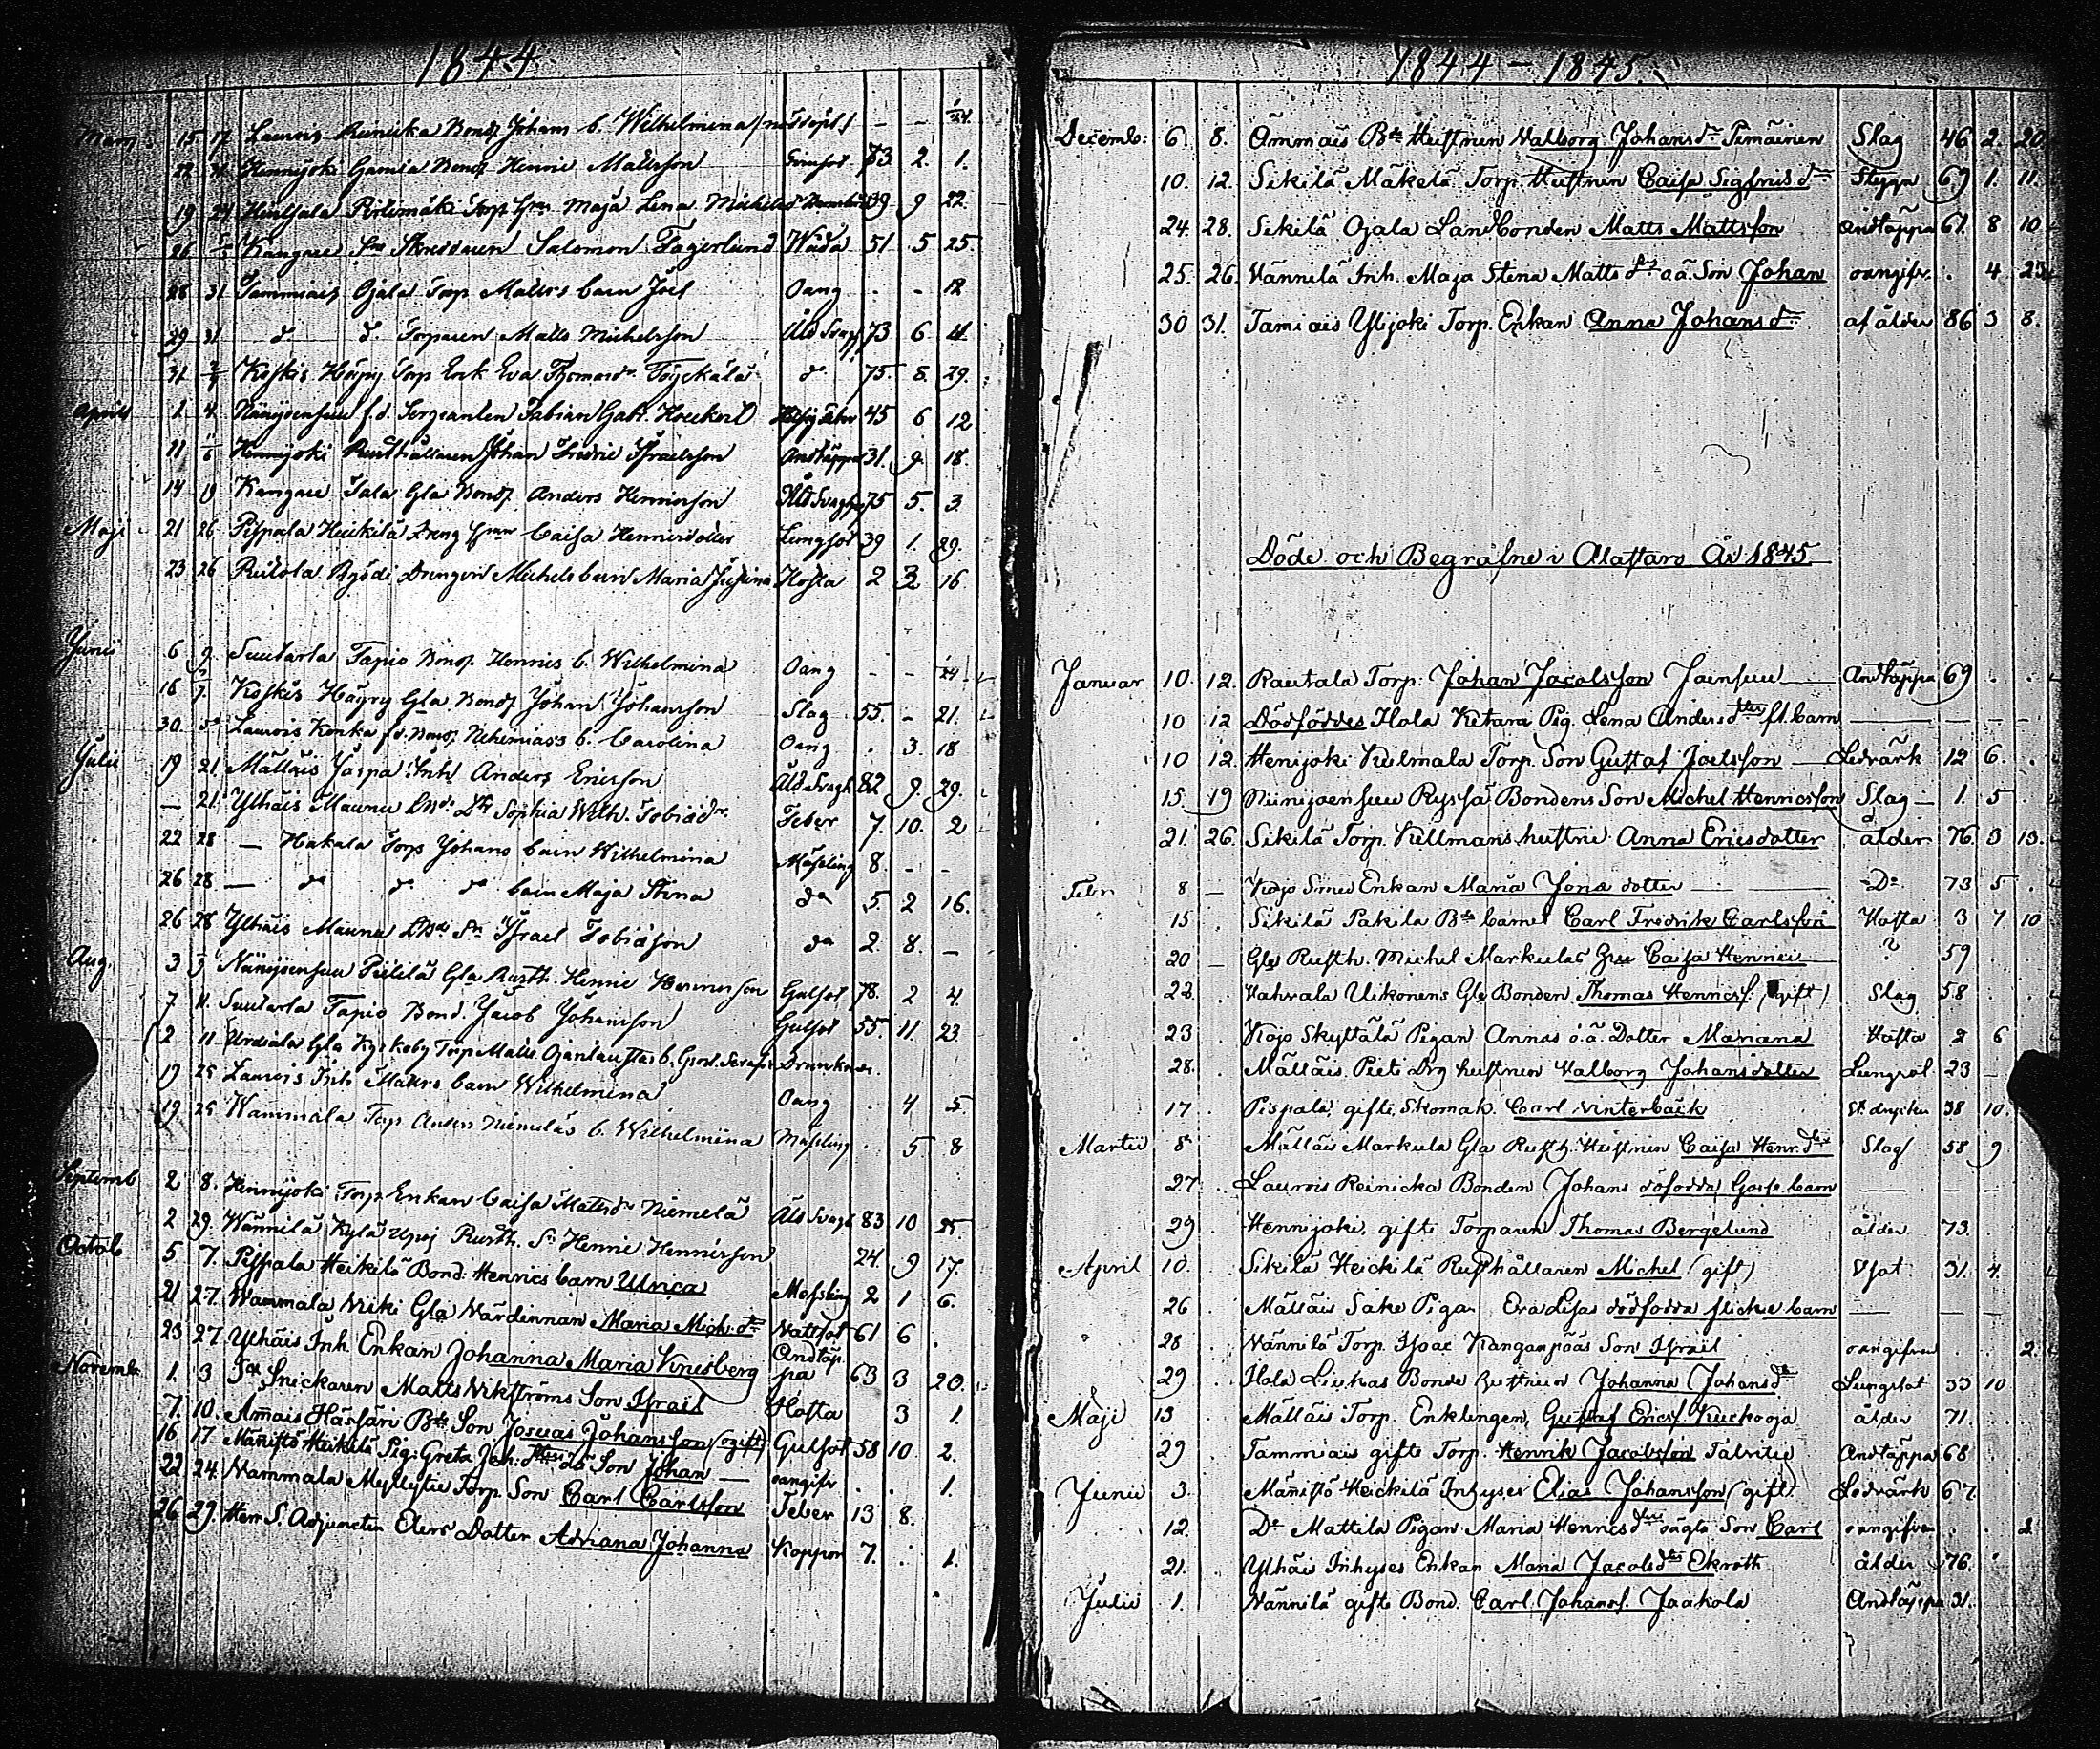 1844.
Mars 15 17 Laurois Bond. Johans b. Wilhelmina - - 1/24
22 24 Hennijoki Gamla Bond. Henric Mattsson 73 2. 1.
19 24 Torp. Maja Lena 39 9 22.
26 Kangare Salomon Fagerlund Wåda 51 5 25.
28 31 Tammiais Ojala Torp Matts barn Joel Oang - - 12
29 31 d d. Torparen Matts Michelsson Åld Svag 73 6 4.
31 Koskis Höyry Torp Enk Eva Töyckälä d 75. 8. 29.
April 1. 4. Niinijoensuu f.d. Sergeanten Fabian Gabr. 45 6 12.
11 Hennijoki Rusthållaren Johan Fredric Israelsson Andtäppa 31. 9. 18.
14 19 Kangare Tala Gla Bond. Anders Henricsson Åld Svagh 75 5. 3.
Maji 21 26 Pispala Heikilä Dreng Caisa Henricsdotter Lungsot 39 1. 29.
23 26 Ruitola Rysdi Drengen Michels barn Maria Justina Hosta 2 2 16.
Junii 6 9 Suutarla Tapio Bond. Henrics b. Wilhelmina Oang - - 1/24
16 Koskis Höyry Gla Bond. Johan Johansson Slag 55. - 21.
30. Laurois Konka f.d. Bond. Nehemias's b. Carolina Oang . 3. 18
Julii 19 21. Mälläis Jaspa Inh. Anders Ericsson Åld Svagh 82 9. 29.
— 21. Ylhäis Maunu Sophia Wilh. Tobiæ dr Feber 7. 10. 2
22 28 — Hakala Torp Johans barn Wilhelmina Mässling 8. - -
26 28 — do do do barn Maja Stina do 5. 2 16.
26 28 Ylhäis Maunu Israel Tobiæson do 2. 8. -
Aug. 3 Niinijoensuu Pietilä Gla Rusth. Henric Henricsson Gulsot 78. 2 4.
7 11. Suutarla Tapio Bond. Jacob Johansson Gulsot 55. 11. 23.
2 11 Gla Kyrkoby Torp Matts Drunknar.
19 25 Laurois Inh Matts barn Wilhelmina Oang . 4 5
19 25 Wammala Torp Anders Niemeläs b. Wilhelmina Mässling . 5 8
Septemb 2 8. Hennijoki Torp. Enkan Caisa Mattsdr Niemelä Åld Svagh 83 10 25.
2 29. Wännilä Kylä Rusth. Sn Henric Henricsson 24. 9 17.
Octob 5 7. Pispala Heikilä Bond. Henrics barn Ulrica Messling 2 1 6.
21 27. Wammala Gla Värdinnan Maria Mich. dr Vattsot 61 6 .
23 27. Ylhäis Inh. Enkan Johanna Maria Andtäppa 63 3 20.
Novemb. 1. 3 Snickaren Matts Wikströms Son Israil Hosta 3 1.
7. 10. Ämmäis Bds Son Josuas Johansson (ogift) Gulsot 58 10 2.
16 17 Männistö Heikilä Pig. Greta Joh. dtrs Son Johan — oangifv . . 1.
22 24. Wammala Torp. Son Carl Carlsson Feber 13 8.
26 29. Herr S. Adjuncten Elers Dotter Adriana Johanna Koppor 7. . 1.
1844 – 1845.
Decemb: 6. 8. Ämmäis Bds Hustrun Walborg Johansdr Slag 46 2. 20.
10. 12. Sikilä Mäkelä Torp. Hustrun Caisa Sigfrids dr 67 1. 11.
24. 28. Sikilä Ojala Landbonden Matts Mattsson Andtäppa 61. 8 10.
25. 26. Vännilä Inh. Maja Stena Matts drs oä. Son Johan oangifv. . 4 23
30 31. Tamiais Ylijoki Torp. Enkan Anna Johans dr af ålder 86 3 8.
Döde och Begrafne i Alastaro År 1845.
Januar 10. 12. Rautala Torp. Johan Jacobsson Joensuu Andtäppa 69 . .
10 12 Dödföddes Hola Ketara Pig. Lena Anders dtrs fl. barn — — —
10 12. Henijoki Kulmala Torp. Son Gustaf Joelsson Ledvärk 12 6. .
15. 19 Niinijoensuu Ryssä Bondens Son Michel Henricsson Slag 1. 5 .
21. 26. Sikilä Torp. Kellmans hustru Anna Ericsdotter ålder 76. 3 13.
Febr 8 — Enkan Maria Jonæ dotter Do 73 5 .
15. . Sikilä Pakila Bds barnet Carl Fredrik Carlsson Hosta 3 7 10
20 — Gla Rusth. Michel Markulas Caisa Henrici ? 59 . .
22. . Vahvala Uikonens Gla Bonden Thomas Henricss. (gift) Slag 58 . .
23 . Kojo Skyttälä Pigan Annas o.ä. Dotter Mariana Hosta 2 6
28. . Mällais Pieti Drg hustrun Walborg Johansdotter Lungsot 23 —
17 . Pispala, gifte Skomak. Carl Winterbäck 38 10.
Martii 8 Mällais Markula Gla Rusth. Hustrun Caisa Henr. dtr Slag 58 9
27. Laurois Reinicka Bonden Johans döfödda Gosse barn — — —
29 Hennijoki, gifte Torparen Thomas Bergelund ålder 73.
April 10. Sikilä Heickilä Rusthållaren Michel (gift) 31. 4.
26 . Mällais Sake Pigan Eva Lisas dödfödda flicke barn — —
28 . Vännilä Torp. Isaac Kanganpääs Son Israil oangifven . . 2.
29 . Hola Liukas Bonde hustrun Johanna Johansdr Lungsot 33 10
Maji 13 Mällais Torp. Enklingen, Gustaf Ericss. Kuckooja ålder 71.
29 Tammiais gifte Torp. Henrik Jacobsson Talvitie Andtäppa 68
Junii 3. Männistö Heickilä Inhyses Elias Johansson (gift) Ledvärk 67.
12. Do Mattila Pigan Maria Henrics dtrs oägta Son Carl oangifven . . 2
21. Ylhäis Inhyses Enkan Maria Jacobsdtr Ekroth ålder 76.
Julii 1. Vännilä gifte Bond. Carl Johanss. Jaakola Andtäppa 31.